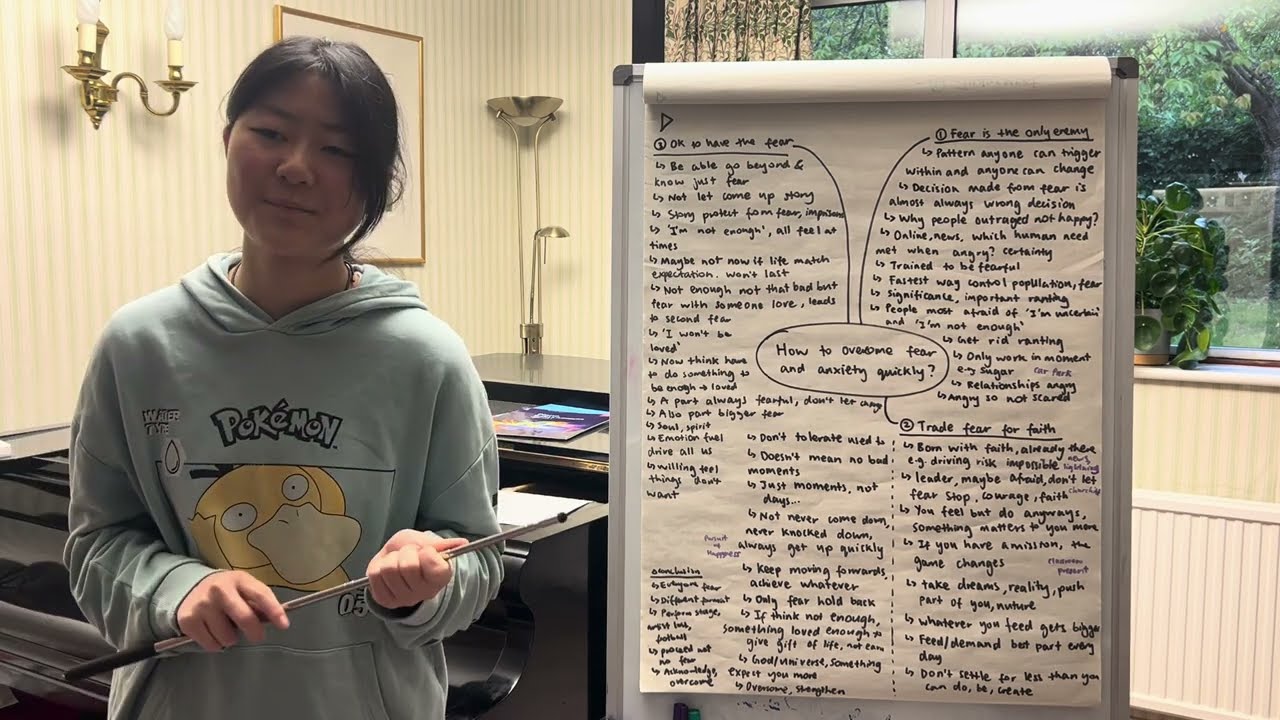 WATER
POKéMON
How to overcome fear
and anxiety quickly?
① Fear is the only enemy
↳ Pattern anyone can trigger
within and anyone can change
↳ Decision made from fear is
almost always wrong decision
↳ Why people outraged not happy?
↳ Online, news, which human need
met when angry? certainty
↳ Trained to be fearful
↳ Fastest way control population, fear
↳ Significance, important ranting
↳ People most afraid of 'I'm uncertain'
and 'I'm not enough'
↳ Get rid ranting
↳ Only work in moment
e.g sugar car park
↳ Relationships angry
↳ Angry so not scared
② Trade fear for faith
↳ Born with faith, already there
e.g. driving risk impossible news
↳ leader, maybe afraid, don't let
fear stop, courage, faith
↳ You feel but do anyways,
something matters to you more
↳ If you have a mission, the
game changes
classroom
present
↳ take dreams, reality, push
part of you, nuture
↳ whatever you feed gets bigger
↳ Feed/demand best part every
day
↳ Don't settle for less than you
can do, be, create
③ OK to have the fear
↳ Be able go beyond &
know just fear
↳ Not let come up story
↳ Story protect from fear, imprisons
↳ 'I'm not enough', all feel at
times
↳ Maybe not now if life match
expectation. won't last
↳ Not enough not that bad but
fear with someone love, leads
to second fear
↳ 'I won't be
loved'
↳ Now think have
to do something to
be enough → loved
↳ A part always fearful, don't let
↳ Also part bigger fear
↳ Soul, spirit
↳ Emotion fuel
drive all us
↳ willing feel
things don't
want
↳ Don't tolerate used to
↳ Doesn't mean no bad
moments
↳ Just moments, not
days...
↳ Not never come down,
never knocked down,
always get up quickly
Pursuit
of
Happyness
↳ Keep moving forwards,
achieve whatever
↳ Only fear hold back
↳ If think not enough,
something loved enough to
give gift of life, not earn
↳ God/universe, something
expect you more
↳ Overcome, strengthen
Conclusion
↳ Everyone fear
↳ Different
↳ Perform stage,
football
↳ proceed not
no fear
↳ Acknowledge,
overcome